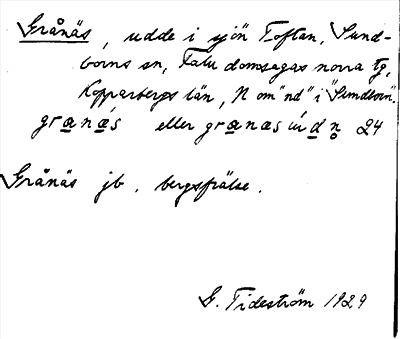 Grånäs, udde i sjön Toftan, Sund-
borns sn, Falu domsagas norra tg,
Kopparbergs län, N om "nd" i "Sundborn".
granás eller granasúdn 24
Grånäs jb, bergsfrälse.
G. Tideström 1929